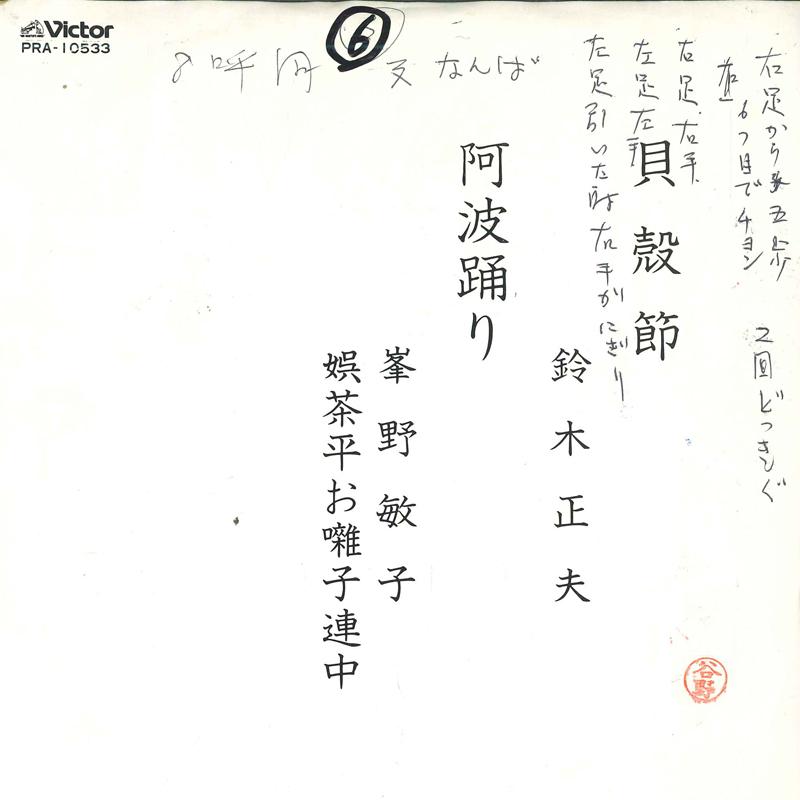 Victor
PRA-10533
6
又 なんば
右足から 五歩
6つ目でチョン
2回どっきんぐ
右足 右手
左足 左手
左足引いた時 右手がにぎり
貝殻節
鈴木正夫
阿波踊り
峯野敏子
娯茶平お囃子連中
谷野